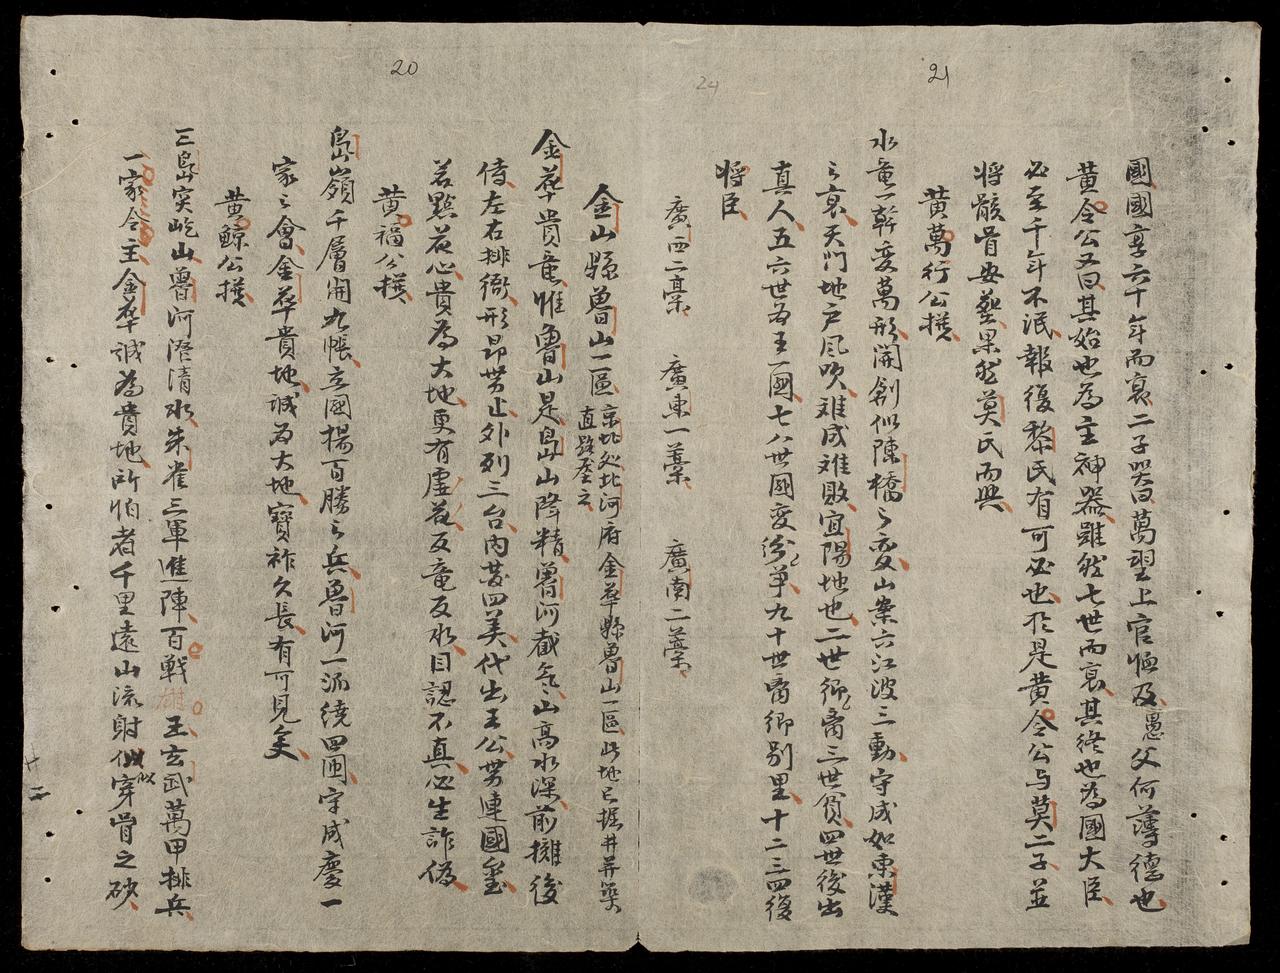 21
國國享六十年而衰二子哭曰萬望上官恤及愚父何薄德也
黄令公又曰其始也為主神器雖然七世而衰其終也為國大臣
必至千年不泯報復黎民有可必也於是黄令公与莫二子並
将骸骨安葬果然莫氏而興
黄萬行公撰
水竜一幹变萬形開創似陳橋之变山案六江波三動守成如東漢
之衰天門地户風吹难成难敗宜陽地也二世卿裔三世貧四世後出
真人五六世為王一國七八世國变紛争九十世裔卿别里十二三四復
将臣
24
廣西二藁 廣東一藁 廣南二藁
金山縣魯山一區京北处北河府金華縣魯山一區此地已掘井并築
直路塞之
20
金華貴竜惟魯山是島山降精魯河截氣山高水深前擁後
侍左右排衙形昂势止外列三台内发四美代出王公势連國璽
若點花心貴為大地更有虚花反竜反水目認不真必生詐偽
黄福公撰
島嶺千層開九帳立國揚百勝之兵魯河一派繞四囲守成慶一
家之會金華貴地誠为大地寳祚久長有可見矣
黄鯨公撰
三島突屹山魯河澄清水朱雀三軍進陣百戰雄王玄武萬甲排兵
一家令主金華誠為貴地所怕者千里遠山流射似穿骨之砂
廿二